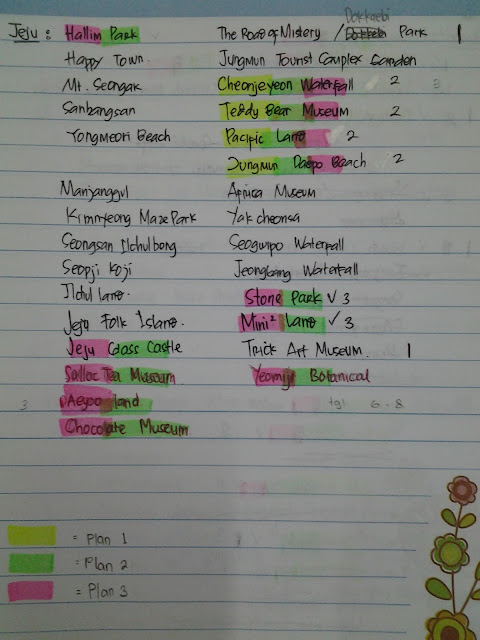 Jeju : Hallim Park
Happy Town
Mt. Seongak
Sanbangsan
Yongmeori Beach
Manjanggul
Kimnyeong Maze Park
Seongsan Ilchulbong
Seopji Koji
Ilchul Land
Jeju Folk Island
Jeju Glass Castle
Sulloc Tea Museum
3 Aeyoo land
Chocolate Museum
The Road of Mistery / Dokkaebi Park 1
Jungmun Tourist Complex Garden
Cheonjeyeon Waterfall 2 3
Teddy Bear Museum 2
Pacific Land 2
Jungmun Daepo Beach 2
Africa Museum
Yakcheonsa
Seogwipo Waterfall
Jeongbang Waterfall
Stone Park √ 3
Mini² Land √ 3
Trick Art Museum 1
Yeomiji Botanical
tgl 6-8
= Plan 1
= Plan 2
= Plan 3